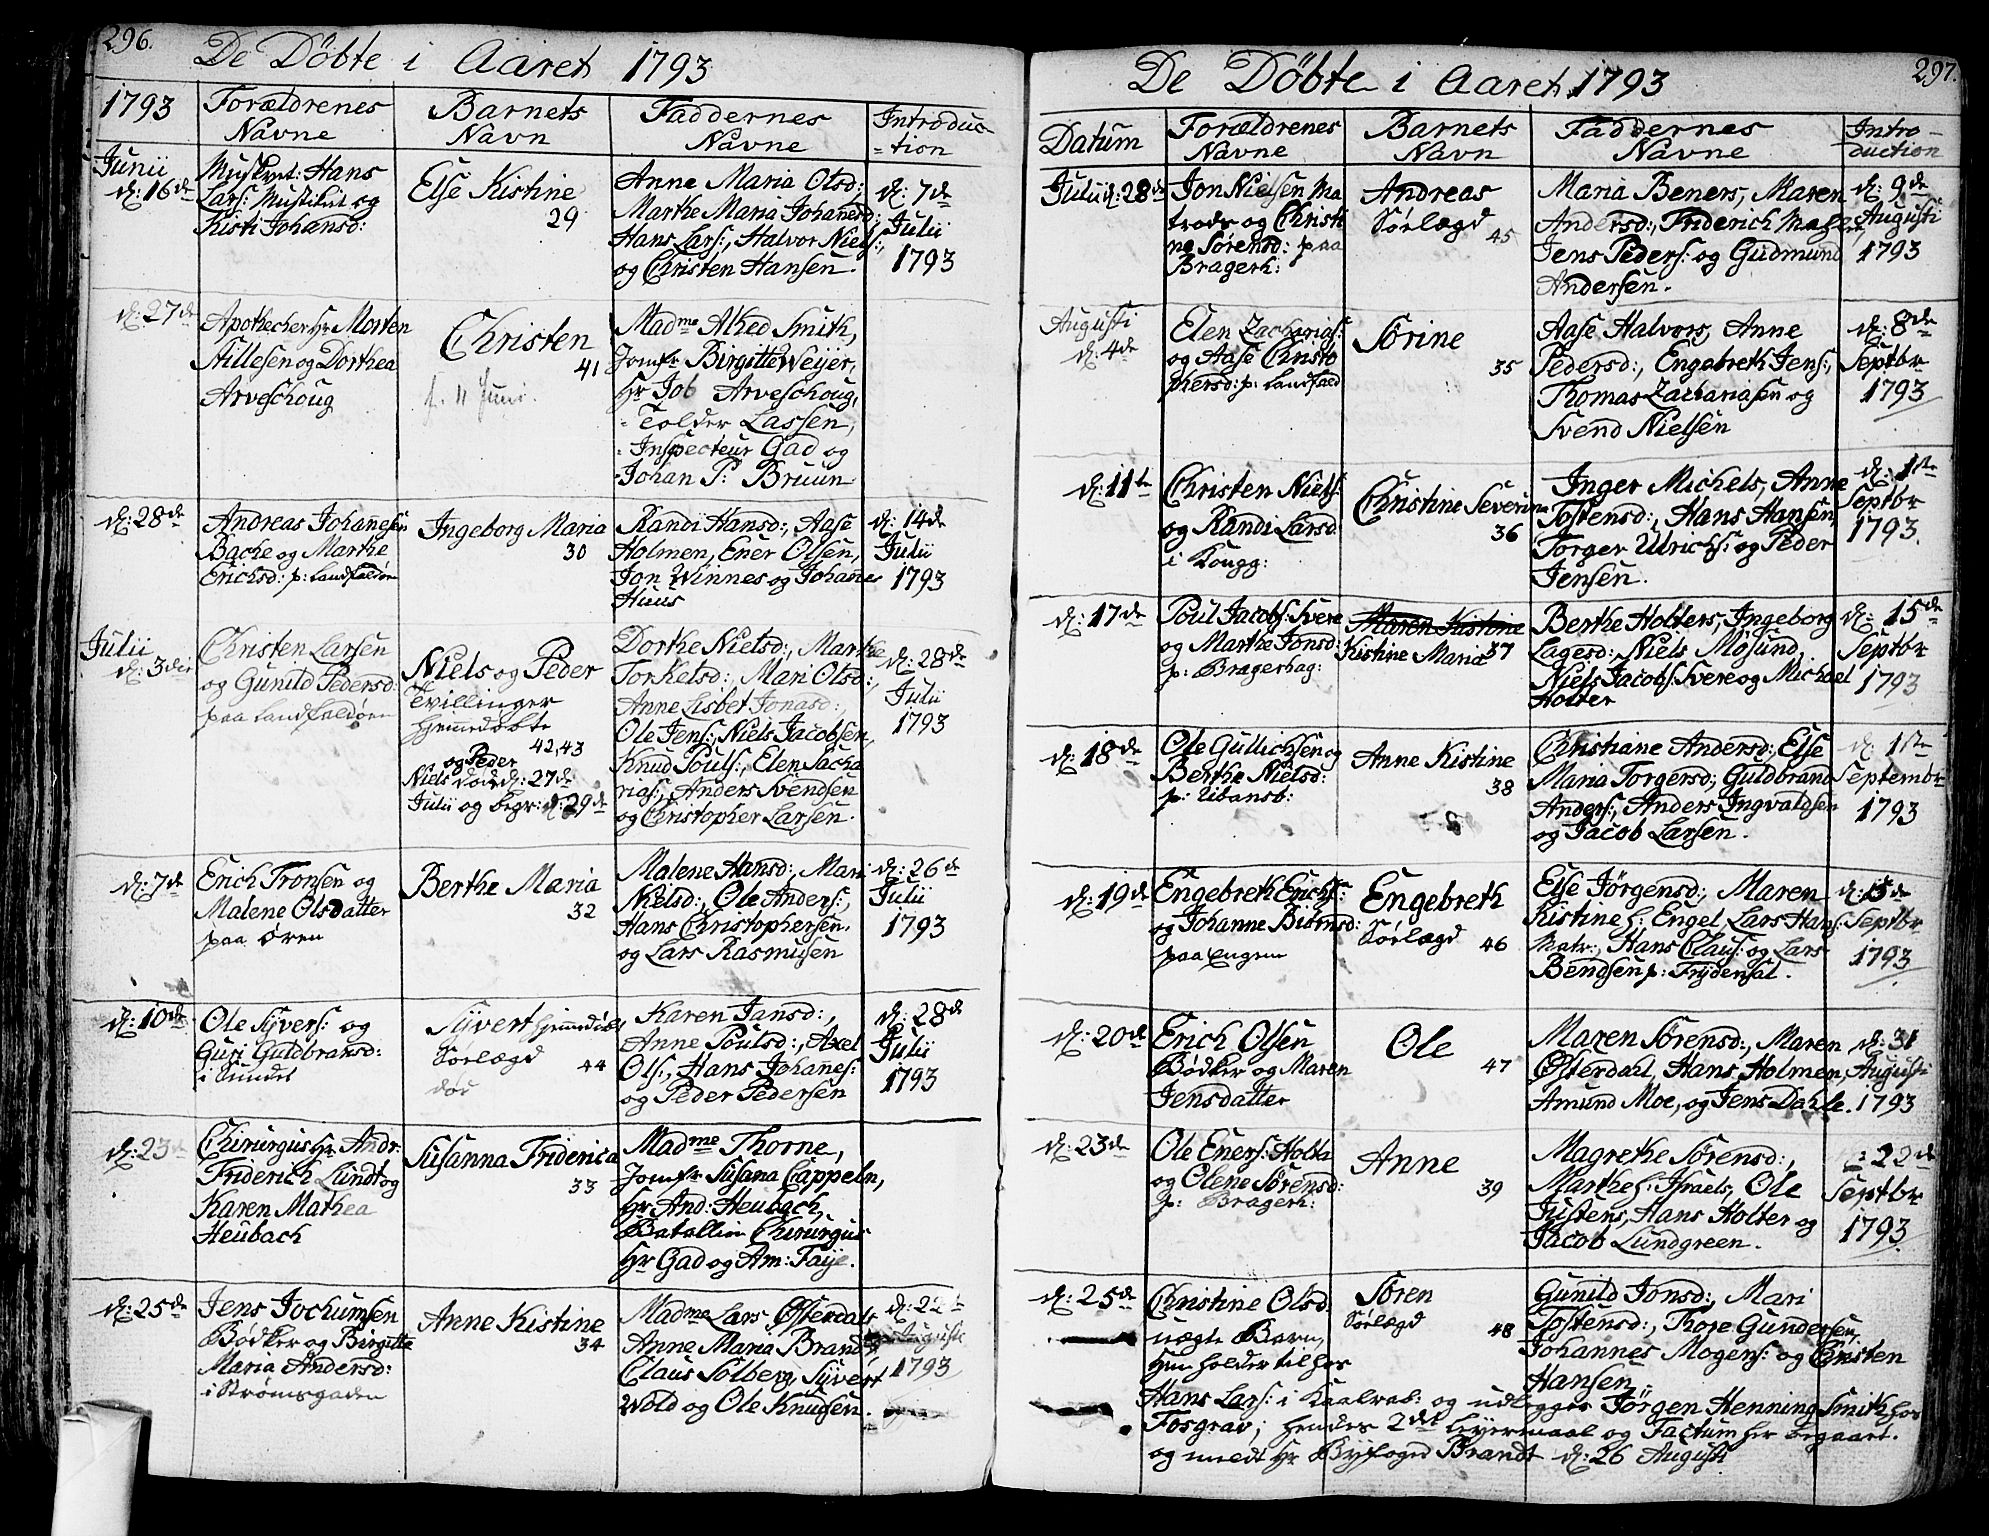 296.
De Döbte i Aaret 1793
1793
Forældrenes
Navne
Barnets
Navn
Faddernes
Navne
Introduc
=tion
Junii
d: 16de
Muskret: Hans
Lars: Mustilut og
Kisti Johansd:
Else Kistine
29
Anne Maria Olsd:
Marthe Maria Johansd:
Hans Lars:, Halvor Niels:,
og Christen Hansen.
d: 7de
Julii
1793
d: 27de
Apothecher Hr Morten
Stillesen og Dorthea
Arveschoug
Christen
41
f. 11 Juni.
Madme Alhed Smith,
Jomfr Birgitte Weyer,
Hr Job Arveschoug,
Tolder Lassen,
Inspecteur Gad og
Johan P: Bruun
d: 28de
Andreas Johannesen
Bache og Marthe
Erichsd: p: Landfaldøn
Ingeborg Maria
30
Randi Hansd:, Aase
Holmen, Ener Olsen,
Jon Winnes og Johannes
Huus
d: 14de
Julii
1793
Julii
d: 3die
Christen Larsen
og Gunild Pedersd:
paa Landfaldøen
Niels og Peder
Tvillinger
hjemedøbte
42, 43
og Peder
Niels døde d: 27de
Julii og begr: d: 29de
Dorthe Nielsd:, Marthe
Torkelsd:, Mari Olsd:,
Anne Lisbet Jonasd:,
Ole Jens:, Niels Jacobsen,
Knud Pouls:, Elen Sacha
rias:, Anders Svendsen
og Christopher Larsen.
d: 28de
Julii
1793
d: 7de
Erich Tronsen og
Malene Olsdatter
paa Øren
Berthe Maria
32
Malene Hansd:, Mari
Nielsd:, Ole Anders:,
Hans Christophersen.
og Lars Rasmusen
d: 26de
Julii
1793
d: 10de
Ole Syvers: og
Guri Guldbransd:
i Sundet
Syvert hjemedøbt
Sørlægd
44
død
Karen Jansd:,
Anne Poulsd:, Axel
Ols:, Hans Johannes:
og Peder Pedersen
d: 28de
Julii
1793
d: 23de
Chirurgus Hr Andr:
Friderich Lundt og
Karen Mathea
Heubach
Susanna Friderica
33
Madme Thorne,
Jomfr Susana Cappeln,
Hr And: Heubach,
Batallion Chirurgus
Hr Gad og Am: Faye.
d: 25de
Jens Jochumsen
Bødker og Birgitte
Maria Andersd:
i Strømsgaden
Anne Kistine
34
Madme Lars Østerdals
Anne Maria Brandt,
Claus Solberg, Syvert
Wold og Ole Knusen.
d: 22de
Augusti
1793
297.
De Döbte i Aaret 1793
Datum
Forældrenes
Navne
Barnets
Navn
Faddernes
Navne
Intro-
duction
Julii d: 28de
Jon Nielsen Ma
trods og Christi
ne Sørensd: paa
Bragerh:
Andreas
Sørlægd
45
Maria Beners, Maren
Andersd:, Friderich Maler,
Jens Peders: og Gudmund
Andersen.
d: 9de
Augusti
1793
Augusti
d: 4de
Elen Zacharias:
og Aase Christo
phersd: p: Landfald
Sørine
35
Aase Halvors, Anne
Pedersd:, Engebreth Jens:,
Thomas Zachariasen og
Svend Nielsen
d: 8de
Septbr
1793
d: 11te
Christen Niels:
og Randi Larsd:
i Kougg:
Christine Severine
36
Inger Michels, Anne
Tostensd:, Hans Hansen,
Torger Ulrichs: og Peder
Jensen.
d: 1ste
Septbr
1793.
d: 17de
Poul Jacobs: Svere
og Marthe Jonsd:
p: Bragerhag:
Maren Kistine
Kistine Maria 37
Berthe Holters, Ingeborg
Lagesd: Niels Mosund,
Niels Jacobs: Svere og Michael
Holter
d: 15de
Septbr
1793
d: 18de
Ole Gullichsen og
Berthe Nielsd:
p: Ubansb:
Anne Kistine
38
Christiane Andersd:, Else
Maria Torgersd:, Guldbrand
Anders:, Anders Ingvaldsen
og Jacob Larsen.
d: 1ste
Septembr
1793
d: 19de
Engebreth Erichs:
og Johanne Biørnsd:
paa Engene
Engebreth
Sørlægd
46
Else Jørgensd:, Maren
Kistine H: Engel, Lars Hans:
Matr:, Hans Claus: og Lars
Bendsen p: Frydensal.
d: 15de
Septbr
1793
d: 20de
Erich Olsen
Bødker og Maren
Jensdatter
Ole
47
Maren Sørensd:, Maren
Østerdahl, Hans Holmen,
Amund Moe, og Jens Dahle.
d: 31
Augusti
1793
d: 23de
Ole Eners: Holta
og Olene Sørensd:
p: Bragerh:
Anne
39
Magrethe Sørensd:,
Marthe H: Israels, Ole
Justens, Hans Holter og
Jacob Lundgreen.
d: 22de
Septbr
1793
d: 25de
Christine Olsd:
uægte Barn,
hun holder til hos
Søren
Sørlægd
48
Gunild Jonsd:, Mari
Tostensd:, Thore Gundersen,
Johannes Mogens: og Christen
Hansen.
Hans Lars: i Kaalrab: og udlegges Jørgen Henning Smith hos
Fosgrav; hendes 2det Leyermaal og Factum her begaaet.
og meldt Hr Byfoged Brandt d: 26 Augusti